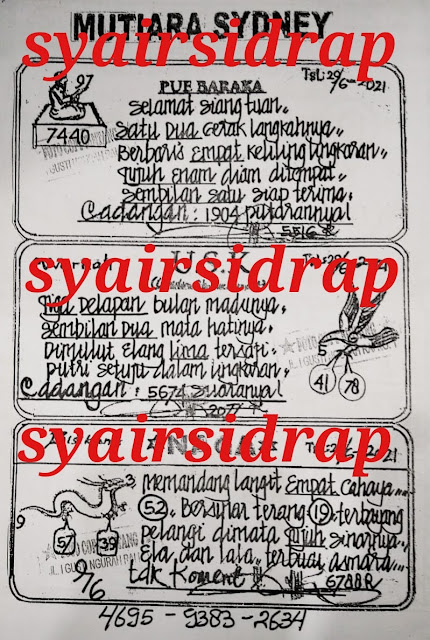 MUTIARA SYDNEY
syairsidrap
97
7440
PUE BARAKA
TGL: 29/6-2021
Selamat siang tuan"
Satu Dua gerak langkahnya"
Berbaris Empat keliling lingkaran"
Tujuh Enam diam ditempat"
Sembilan Satu siap terima"
Cadangan: 1904 putarannya!
5516 R
syairsidrap
U.S.K
Tiga Delapan bulan madunya"
Sembilan Dua mata hatinya"
Dimulut Elang Lima tersaji"
Putri Setuju dalam lingkaran"
Cadangan: 5674 suaranya!
2077
5
41
78
syairsidrap
NAGA
3
9
57
39
9/6
Memandang langit Empat cahaya
52. Bersinar terang 19 terbayang
pelangi dimata Tujuh sinarnya"
Ela dan lala" terbuai asmara
tdk Koment
6788 R
4695 - 9383 - 2634